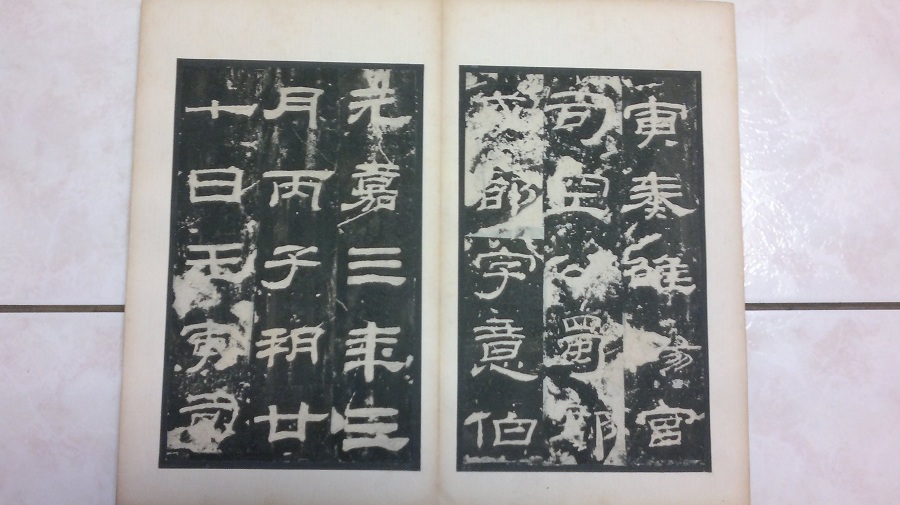 寅奏雒陽宮
司空公蜀郡
成都字意伯
元嘉三年三
月丙子朔廿
七日壬寅司